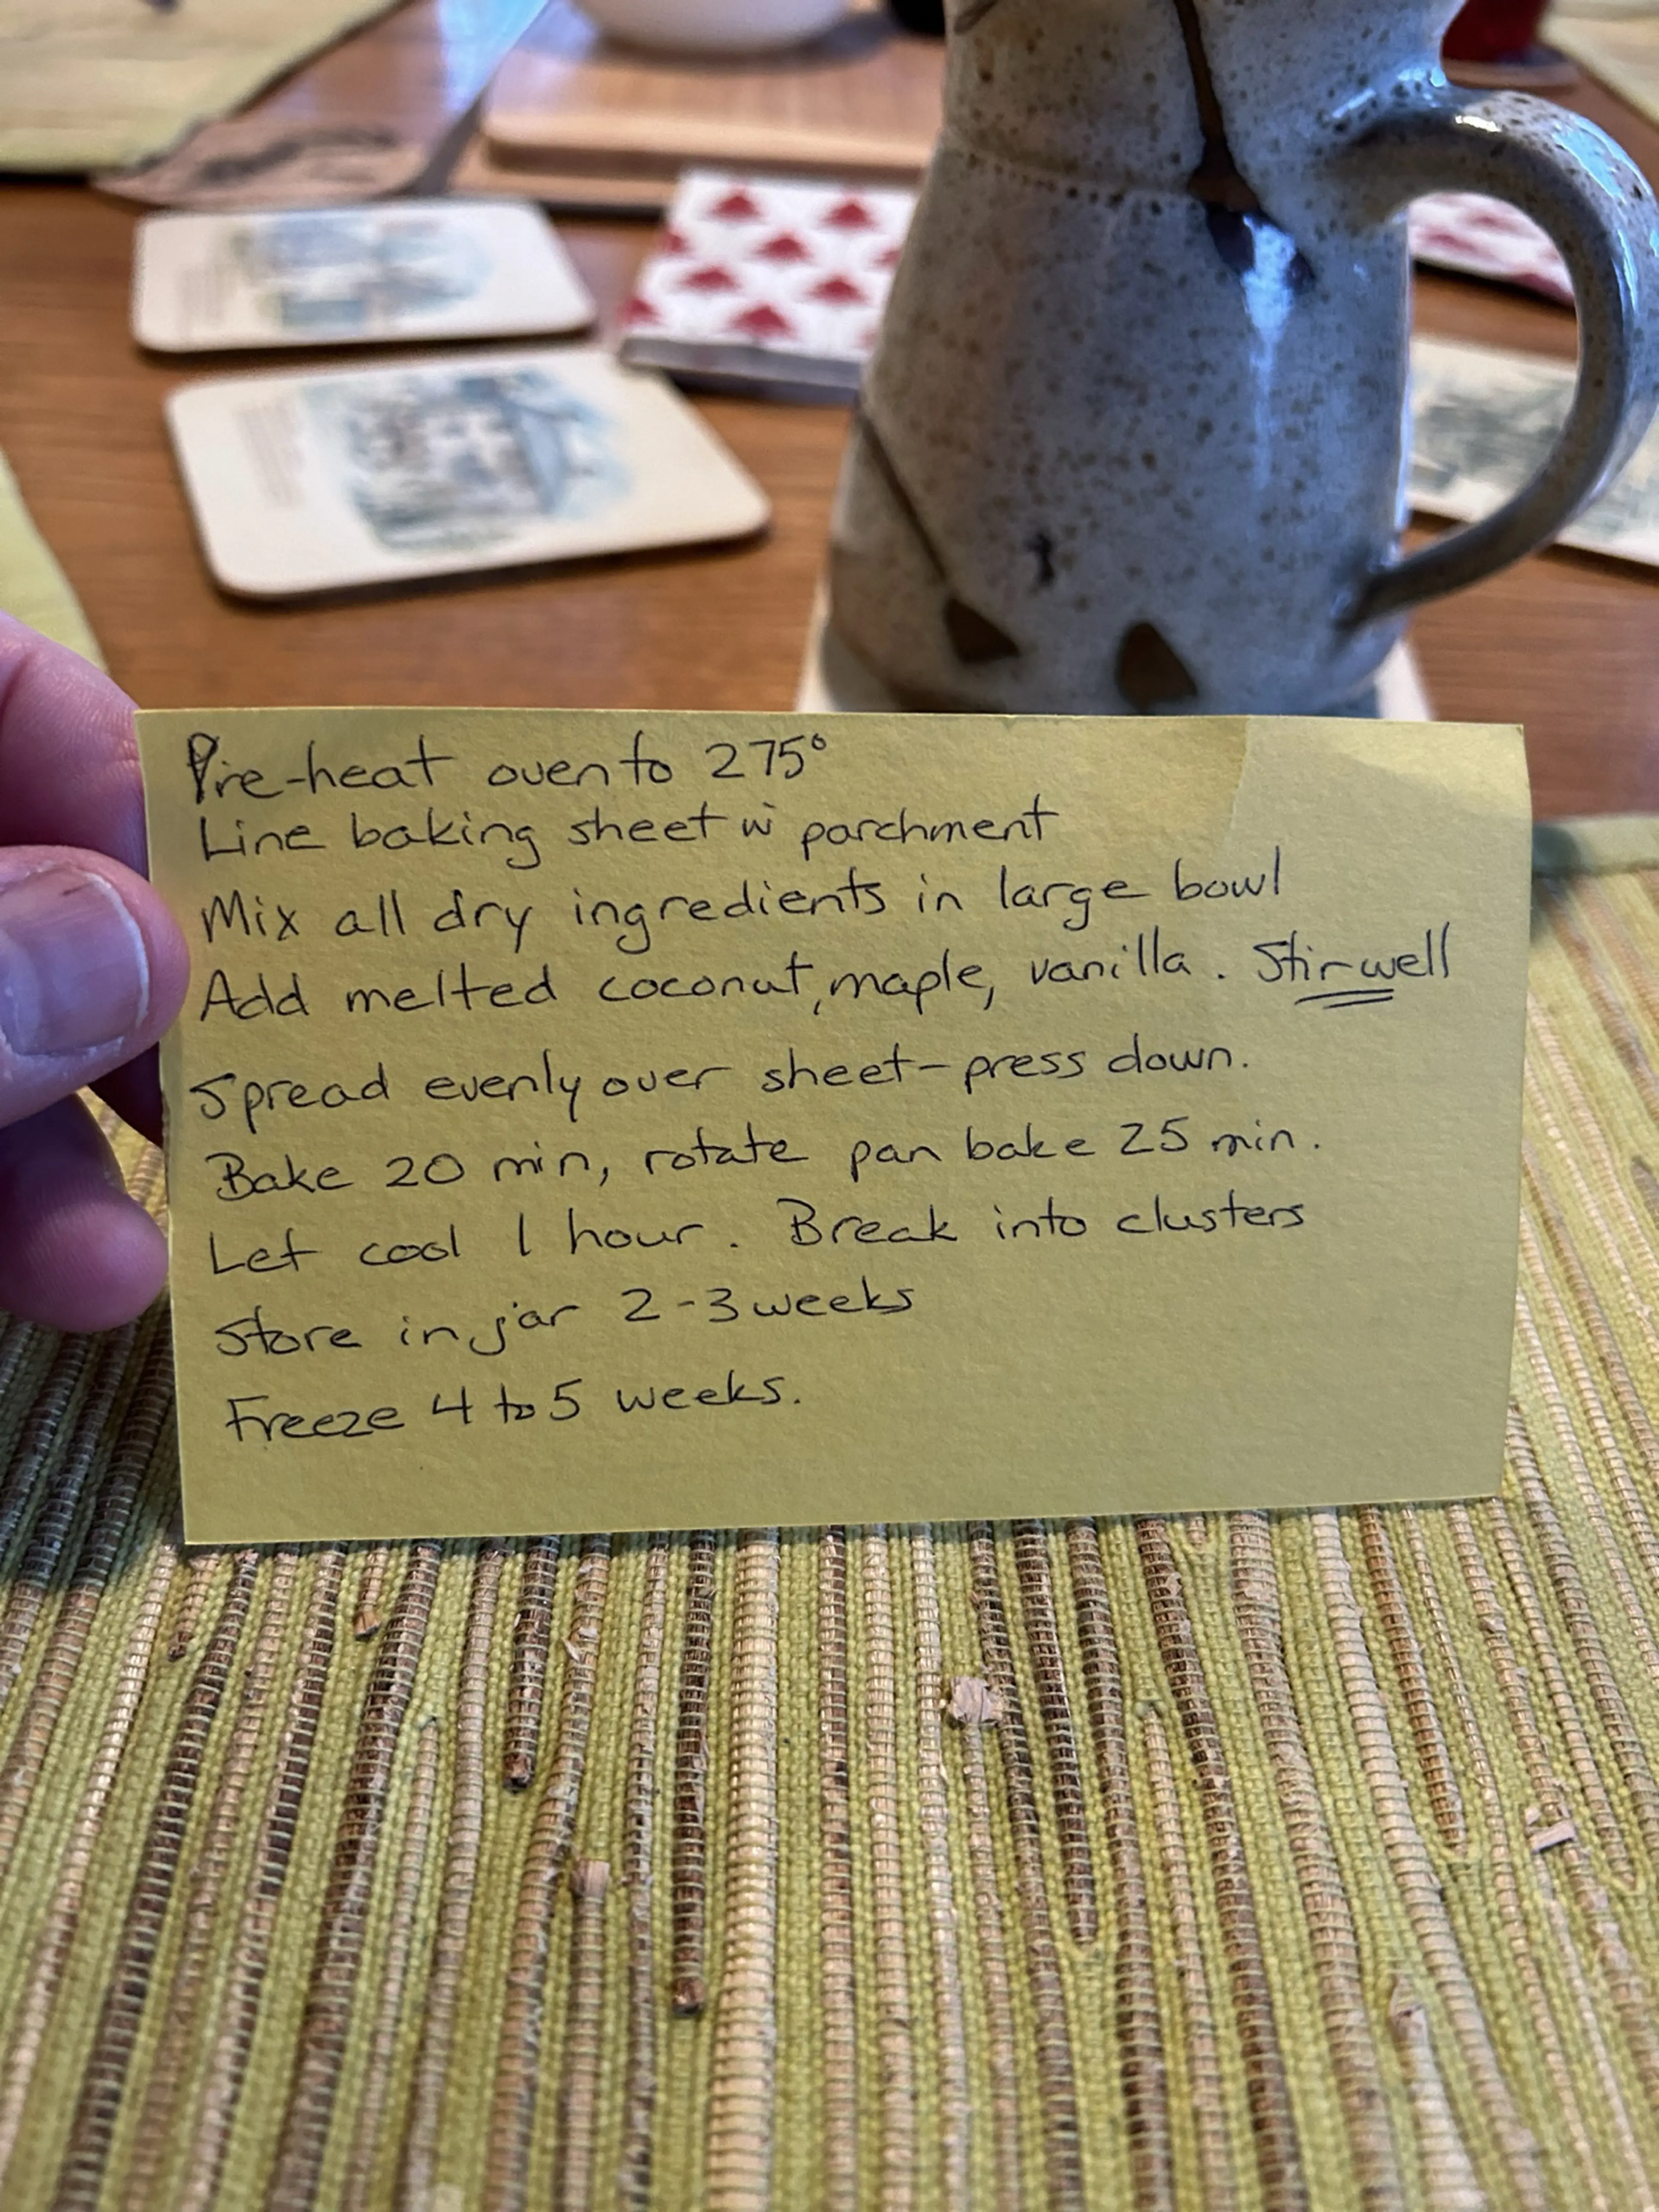 Pre-heat oven to 275°
Line baking sheet w parchment
Mix all dry ingredients in large bowl
Add melted coconut, maple, vanilla. Stir well
Spread evenly over sheet - press down.
Bake 20 min, rotate pan bake 25 min.
Let cool 1 hour. Break into clusters
Store in jar 2-3 weeks
Freeze 4 to 5 weeks.